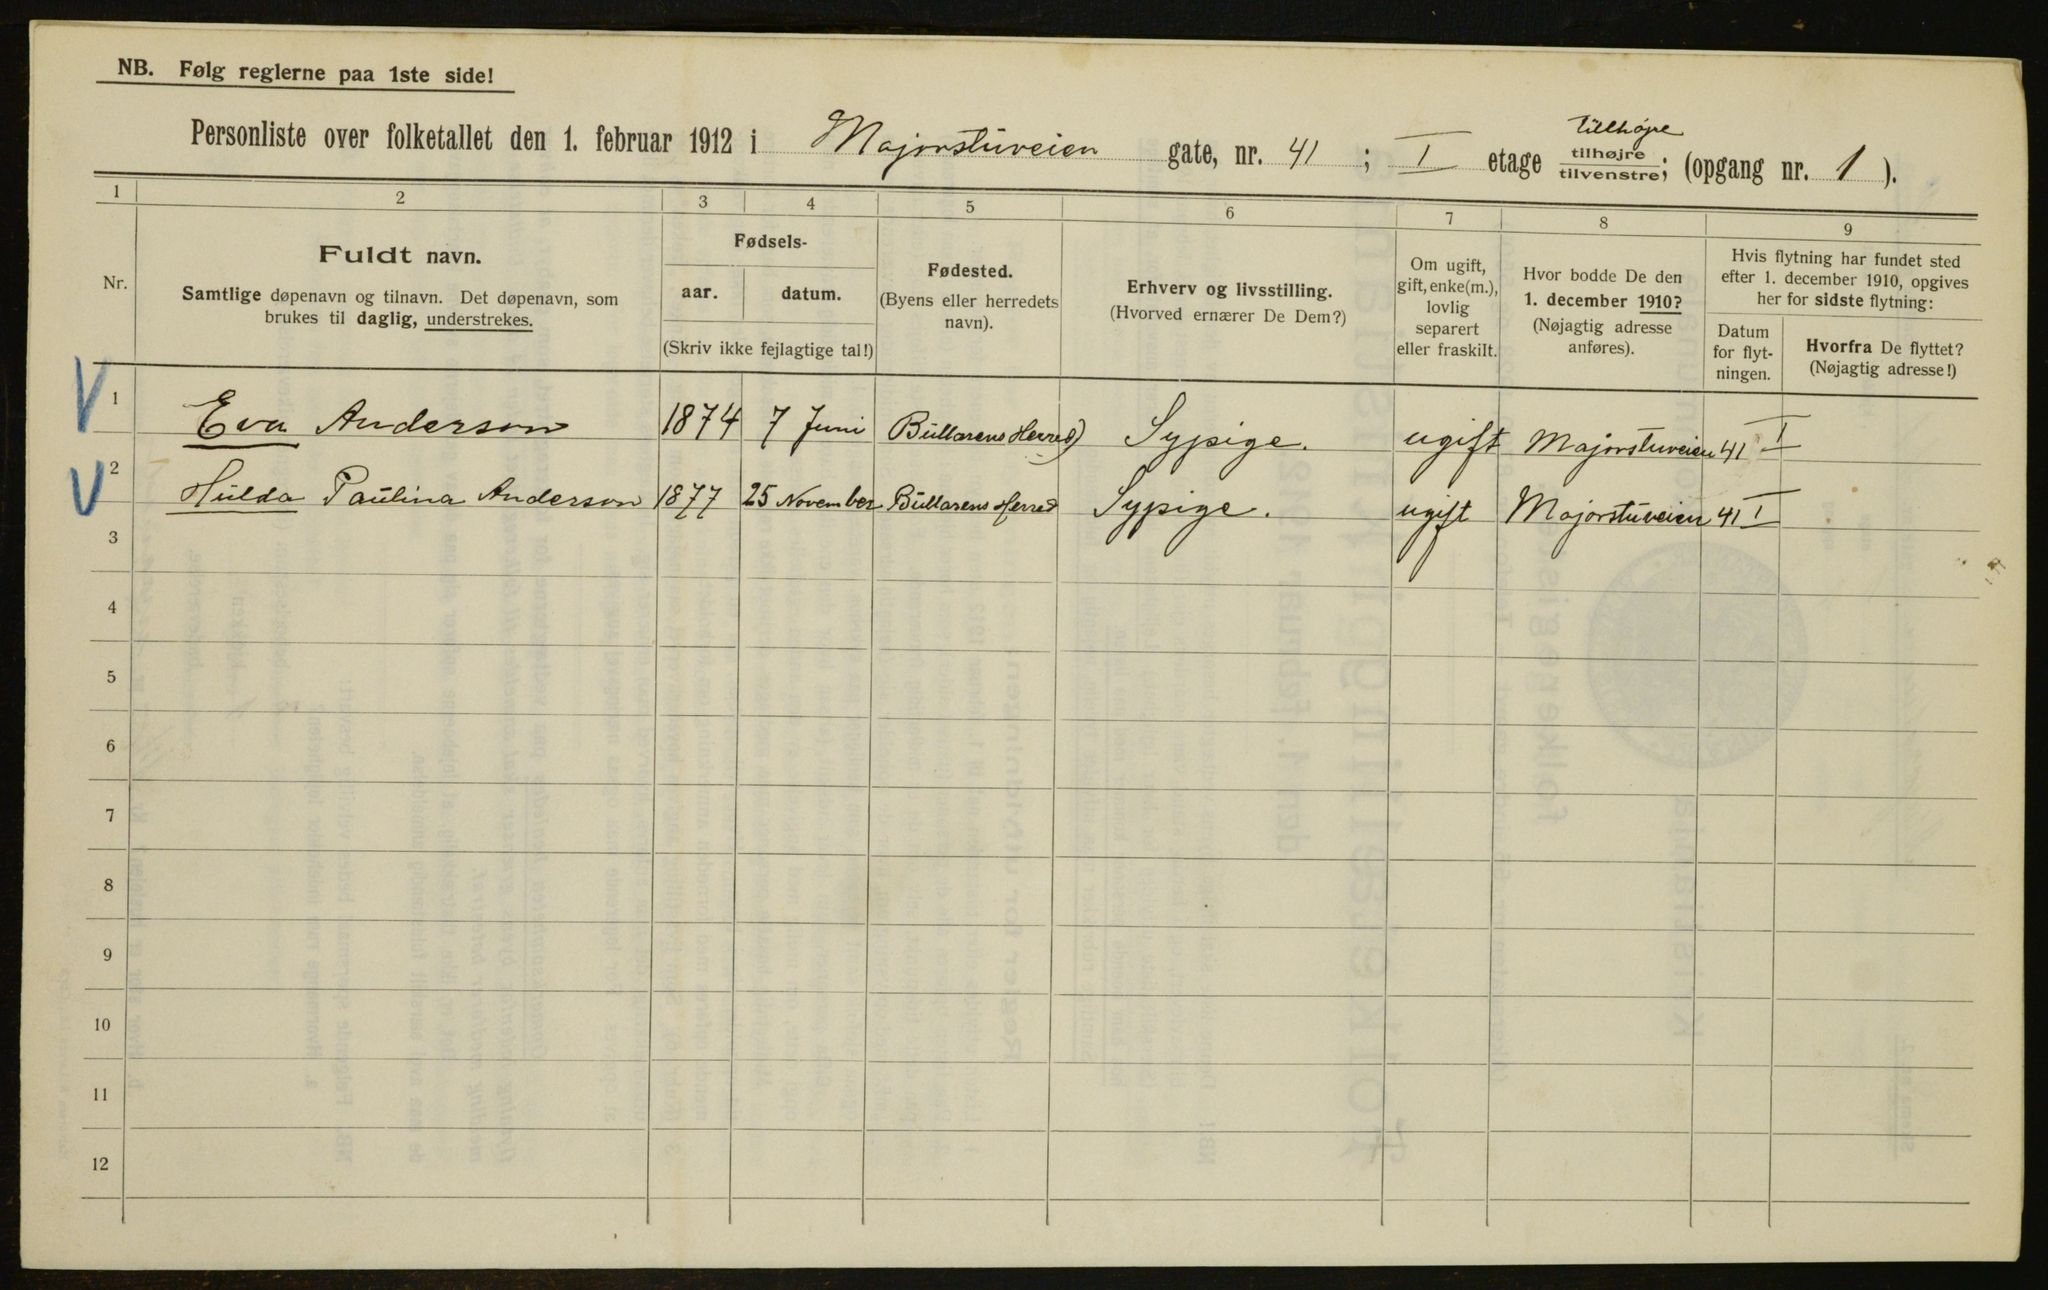 NB. Følg reglerne paa 1ste side!
Tillhöjre
Personliste over folketallet den 1. februar 1912 i Majorstuveien gate, nr. 41 ; I etage tilhøjre/tilvenstre; (opgang nr. 1 ).
1 2 3 4 5 6 7 8 9
Nr.
Fuldt navn.
Samtlige døpenavn og tilnavn. Det døpenavn, som
brukes til daglig, understrekes.
Fødsels-
aar. datum.
(Skriv ikke fejlagtige tal!)
Fødested.
(Byens eller herredets
navn).
Erhverv og livsstilling.
(Hvorved ernærer De Dem?)
Om ugift,
gift, enke(m.),
lovlig
separert
eller fraskilt.
Hvor bodde De den
1. december 1910?
(Nøjagtig adresse
anføres).
Hvis flytning har fundet sted
efter 1. december 1910, opgives
her for sidste flytning:
Datum
for flyt-
ningen.
Hvorfra De flyttet?
(Nøjagtig adresse!)
1 Eva Anderson 1874 7 Juni Bullarens Herred) Sypige. ugift Majorstuveien 41 I
2 Hulda Paulina Anderson 1877 25 November Bullarens Herred Sypige. ugift Majorstuveien 41 I
3
4
5
6
7
8
9
10
11
12